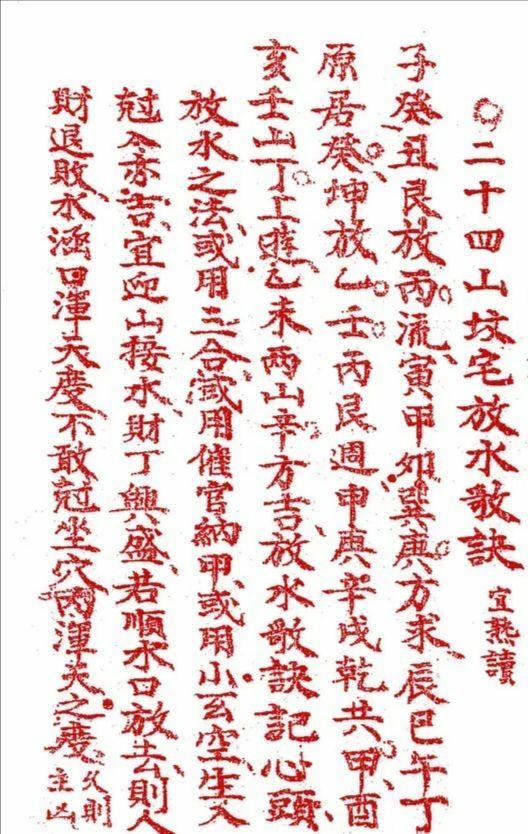 〇二十四山坟宅放水歌訣宜熟讀
子癸丑艮放丙流寅甲如巽庚方求辰巳午丁
原居癸坤放乙壬丙艮週申庚辛戌乾共甲酉
亥壬山丁上遊乙未兩山辛方吉放水歌訣記心頭
放水之法或用三合或用催官納甲或用小玄空生入
尅入亦吉宜迎山接水財丁興盛若順水口放去則人
財退敗水涵口渾天度不敢尅坐穴渾天之度久則主凶